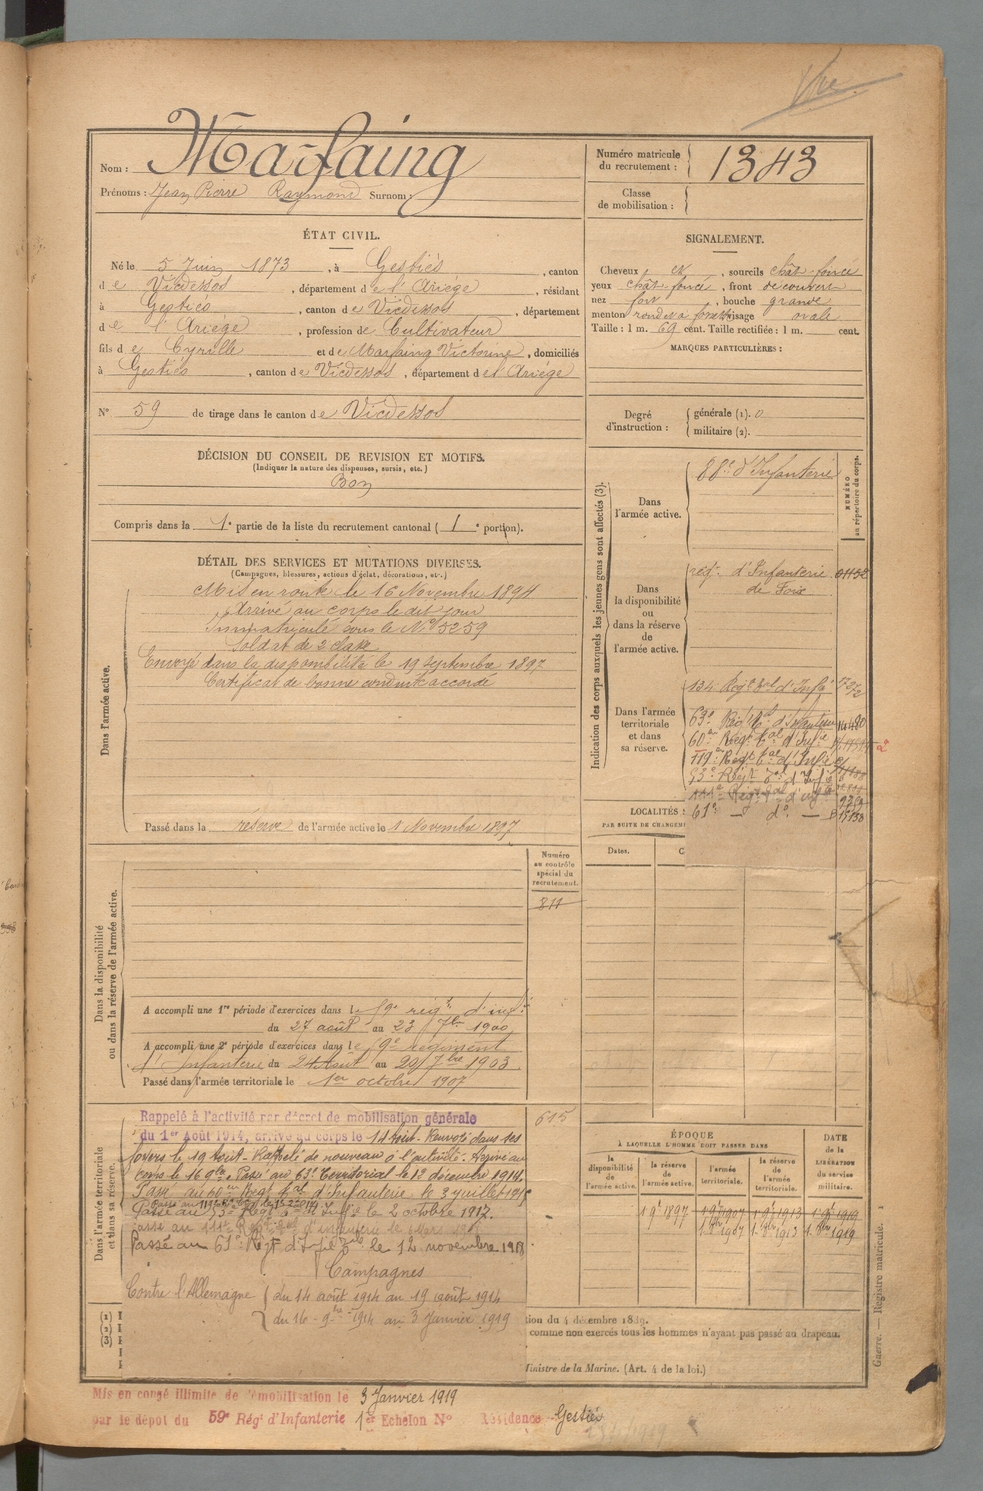 Vue
Nom : Marfaing
Prénoms : Jean Pierre Raymond Surnom :
Numéro matricule du recrutement : 1343
Classe de mobilisation :
ÉTAT CIVIL.
Né le 5 Juin 1873, à Gestiés, canton
de Vicdessos, département de l'Ariége, résidant
à Gestiés, canton de Vicdessos, département
de l'Ariége, profession de Cultivateur
fils de Cyrille et de Marfaing Victorine, domiciliés
à Gestiés, canton de Vicdessos, département de l'Ariége
N° 59 de tirage dans le canton de Vicdessos
SIGNALEMENT.
Cheveux et, sourcils chât-foncé
yeux chât-foncé, front découvert
nez fort, bouche grande
menton rond visage ovale
Taille : 1 m. 69 cent. Taille rectifiée : 1 m. cent.
MARQUES PARTICULIÈRES :
Degré d'instruction :
générale (1). 0
militaire (2).
DÉCISION DU CONSEIL DE REVISION ET MOTIFS.
(Indiquer la nature des dispenses, sursis, etc.)
Bon
Compris dans la 1e partie de la liste du recrutement cantonal (1e portion).
DÉTAIL DES SERVICES ET MUTATIONS DIVERSES.
(Campagnes, blessures, actions d'éclat, décorations, etc.)
Dans l'armée active.
Mis en route le 16 Novembre 1894
Arrivé au corps le dit jour
Immatriculé sous le N° 5259
Soldat de 2e classe
Envoyé dans la disponibilité le 19 septembre 1897
Certificat de bonne conduite accordé
Passé dans la réserve de l'armée active le 1 Novembre 1897
Indication des corps auxquels les jeunes gens sont affectés (3).
NUMÉRO au répertoire du corps.
Dans l'armée active.
88e d'Infanterie
Dans la disponibilité ou dans la réserve de l'armée active.
régt. d'Infanterie
de Foix
Dans l'armée territoriale et dans sa réserve.
134 Régt tal d'Infie
63e Régt tal d'Infanterie
60e Régt tal d'Infie
119e Régt tal d'Infie
53e Régt tal d'Infie
61e — do —
LOCALITÉS
PAR SUITE DE CHANGEM
Dates.
Numéro au contrôle spécial du recrutement.
811
Dans la disponibilité ou dans la réserve de l'armée active.
A accompli une 1re période d'exercices dans le 59e régt d'inf.
du 27 août au 23 7bre 1900
A accompli une 2e période d'exercices dans le 9e régiment
d'Infanterie du 24 Août au 20 7bre 1903
Passé dans l'armée territoriale le 1er octobre 1907
Dans l'armée territoriale et dans sa réserve.
615
Rappelé à l'activité par décret de mobilisation générale
du 1er Août 1914, arrive au corps le 14 Août. Renvoyé dans ses
foyers le 19 Août. Rappelé de nouveau à l'activité. Arrivé au
corps le 16 9bre. Passé au 63e Territorial le 12 décembre 1914.
Passé au 60e Régt tal d'Infanterie le 3 juillet 1915
Passé au 53e Régt tal d'Infie le 2 octobre 1917.
Passé au 61e Régt d'Infie tale le 12 novembre 1918
Campagnes
Contre l'Allemagne
du 14 août 1914 au 19 août 1914
du 16 9bre 1914 au 3 Janvier 1919
ÉPOQUE
À LAQUELLE L'HOMME DOIT PASSER DANS
la disponibilité de l'armée active.
la réserve de l'armée active.
l'armée territoriale.
la réserve de l'armée territoriale.
DATE de la LIBÉRATION du service militaire.
1 9bre 1897
1 9bre 1907
1 9bre 1913
1 9bre 1919
1. 8bre 1907
1. 8bre 1913
1. 8bre 1919
(1)
(2)
(3)
tion du 4 décembre 1889.
comme non exercés tous les hommes n'ayant pas passé au drapeau.
Ministre de la Marine. (Art. 4 de la loi.)
Guerre. — Registre matricule. 1
Mis en congé illimité de démobilisation le 3 Janvier 1919
par le dépôt du 59e Régt d'Infanterie 1er Echelon N° Résidence Gestiés